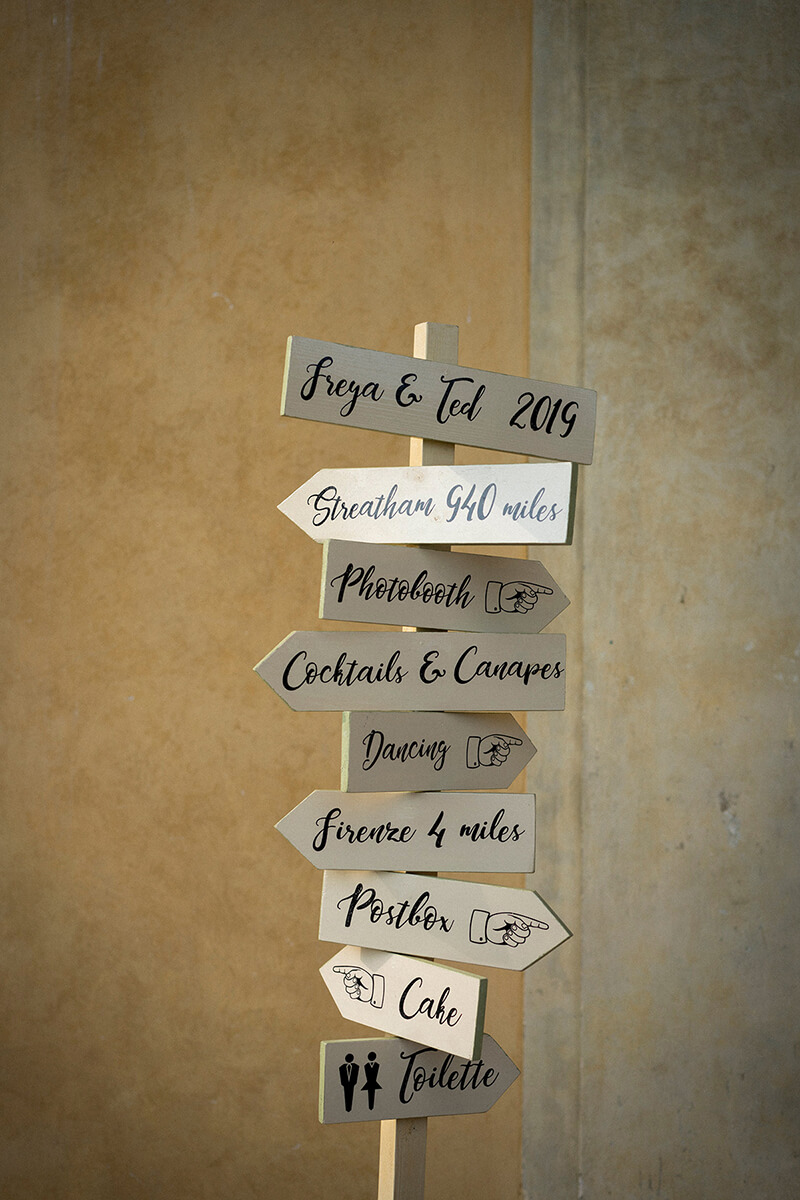 Freya & Ted 2019
Streatham 940 miles
Photobooth
Cocktails & Canapes
Dancing
Firenze 4 miles
Postbox
Cake
Toilette